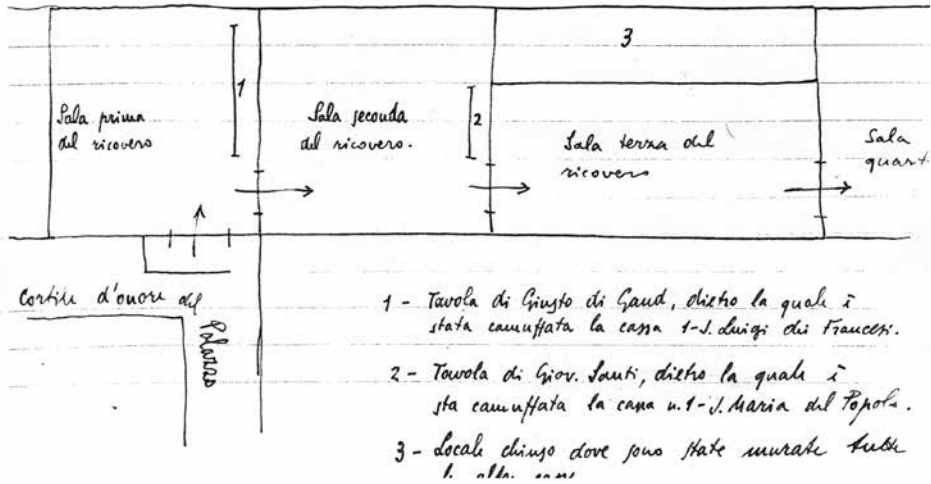 3
1
2
Sala prima
del ricovero
Sala seconda
del ricovero.
Sala terza del
ricovero
Sala
quart
Cortile d'onore del
Palazzo
1 - Tavola di Giusto di Gand, dietro la quale è
stata camuffata la cassa 1-S. Luigi dei Francesi.
2 - Tavola di Giov. Santi, dietro la quale è
sta camuffata la cassa n. 1 - S. Maria del Popolo.
3 - Locale chiuso dove sono state murate tutte
le altre casse